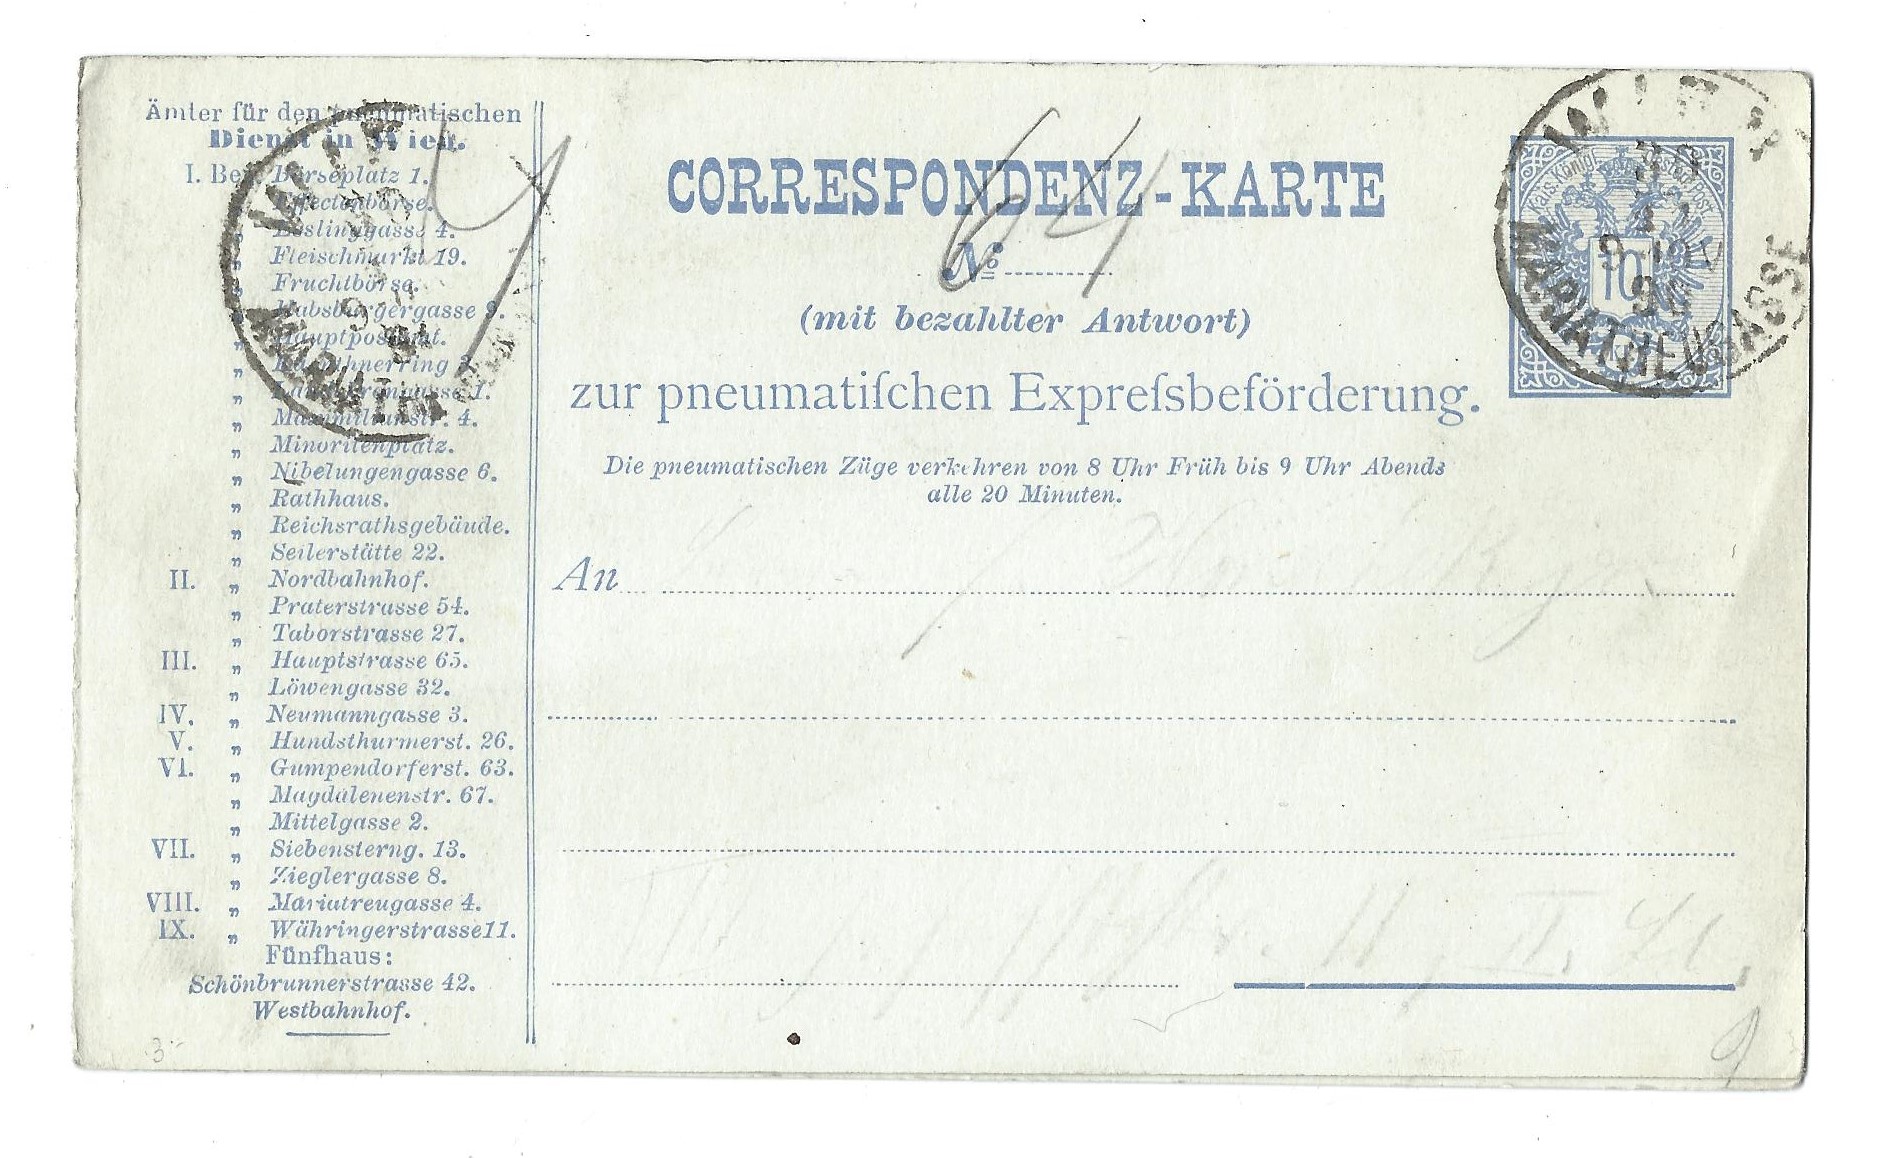 Ämter für den pneumatischen
Dienst in Wien.
I. Bez. Börseplatz 1.
„ Effectenbörse.
„ Esslinggasse 4.
„ Fleischmarkt 19.
„ Fruchtbörse.
„ Habsburgergasse 9.
„ Hauptpostamt.
„ Kärnthnerring 3.
„ 1.
„ Maximilianstr. 4.
„ Minoritenplatz.
„ Nibelungengasse 6.
„ Rathhaus.
„ Reichsrathsgebäude.
„ Seilerstätte 22.
II. „ Nordbahnhof.
„ Praterstrasse 54.
„ Taborstrasse 27.
III. „ Hauptstrasse 65.
„ Löwengasse 32.
IV. „ Neumanngasse 3.
V. „ Hundsthurmerst. 26.
VI. „ Gumpendorferst. 63.
„ Magdalenenstr. 67.
„ Mittelgasse 2.
VII. „ Siebensterng. 13.
„ Zieglergasse 8.
VIII. „ Mariatreugasse 4.
IX. „ Währingerstrasse 11.
Fünfhaus:
Schönbrunnerstrasse 42.
Westbahnhof.
CORRESPONDENZ-KARTE
No 64
(mit bezahlter Antwort)
zur pneumatiſchen Expreſsbeförderung.
Die pneumatischen Züge verkehren von 8 Uhr Früh bis 9 Uhr Abends
alle 20 Minuten.
An
10